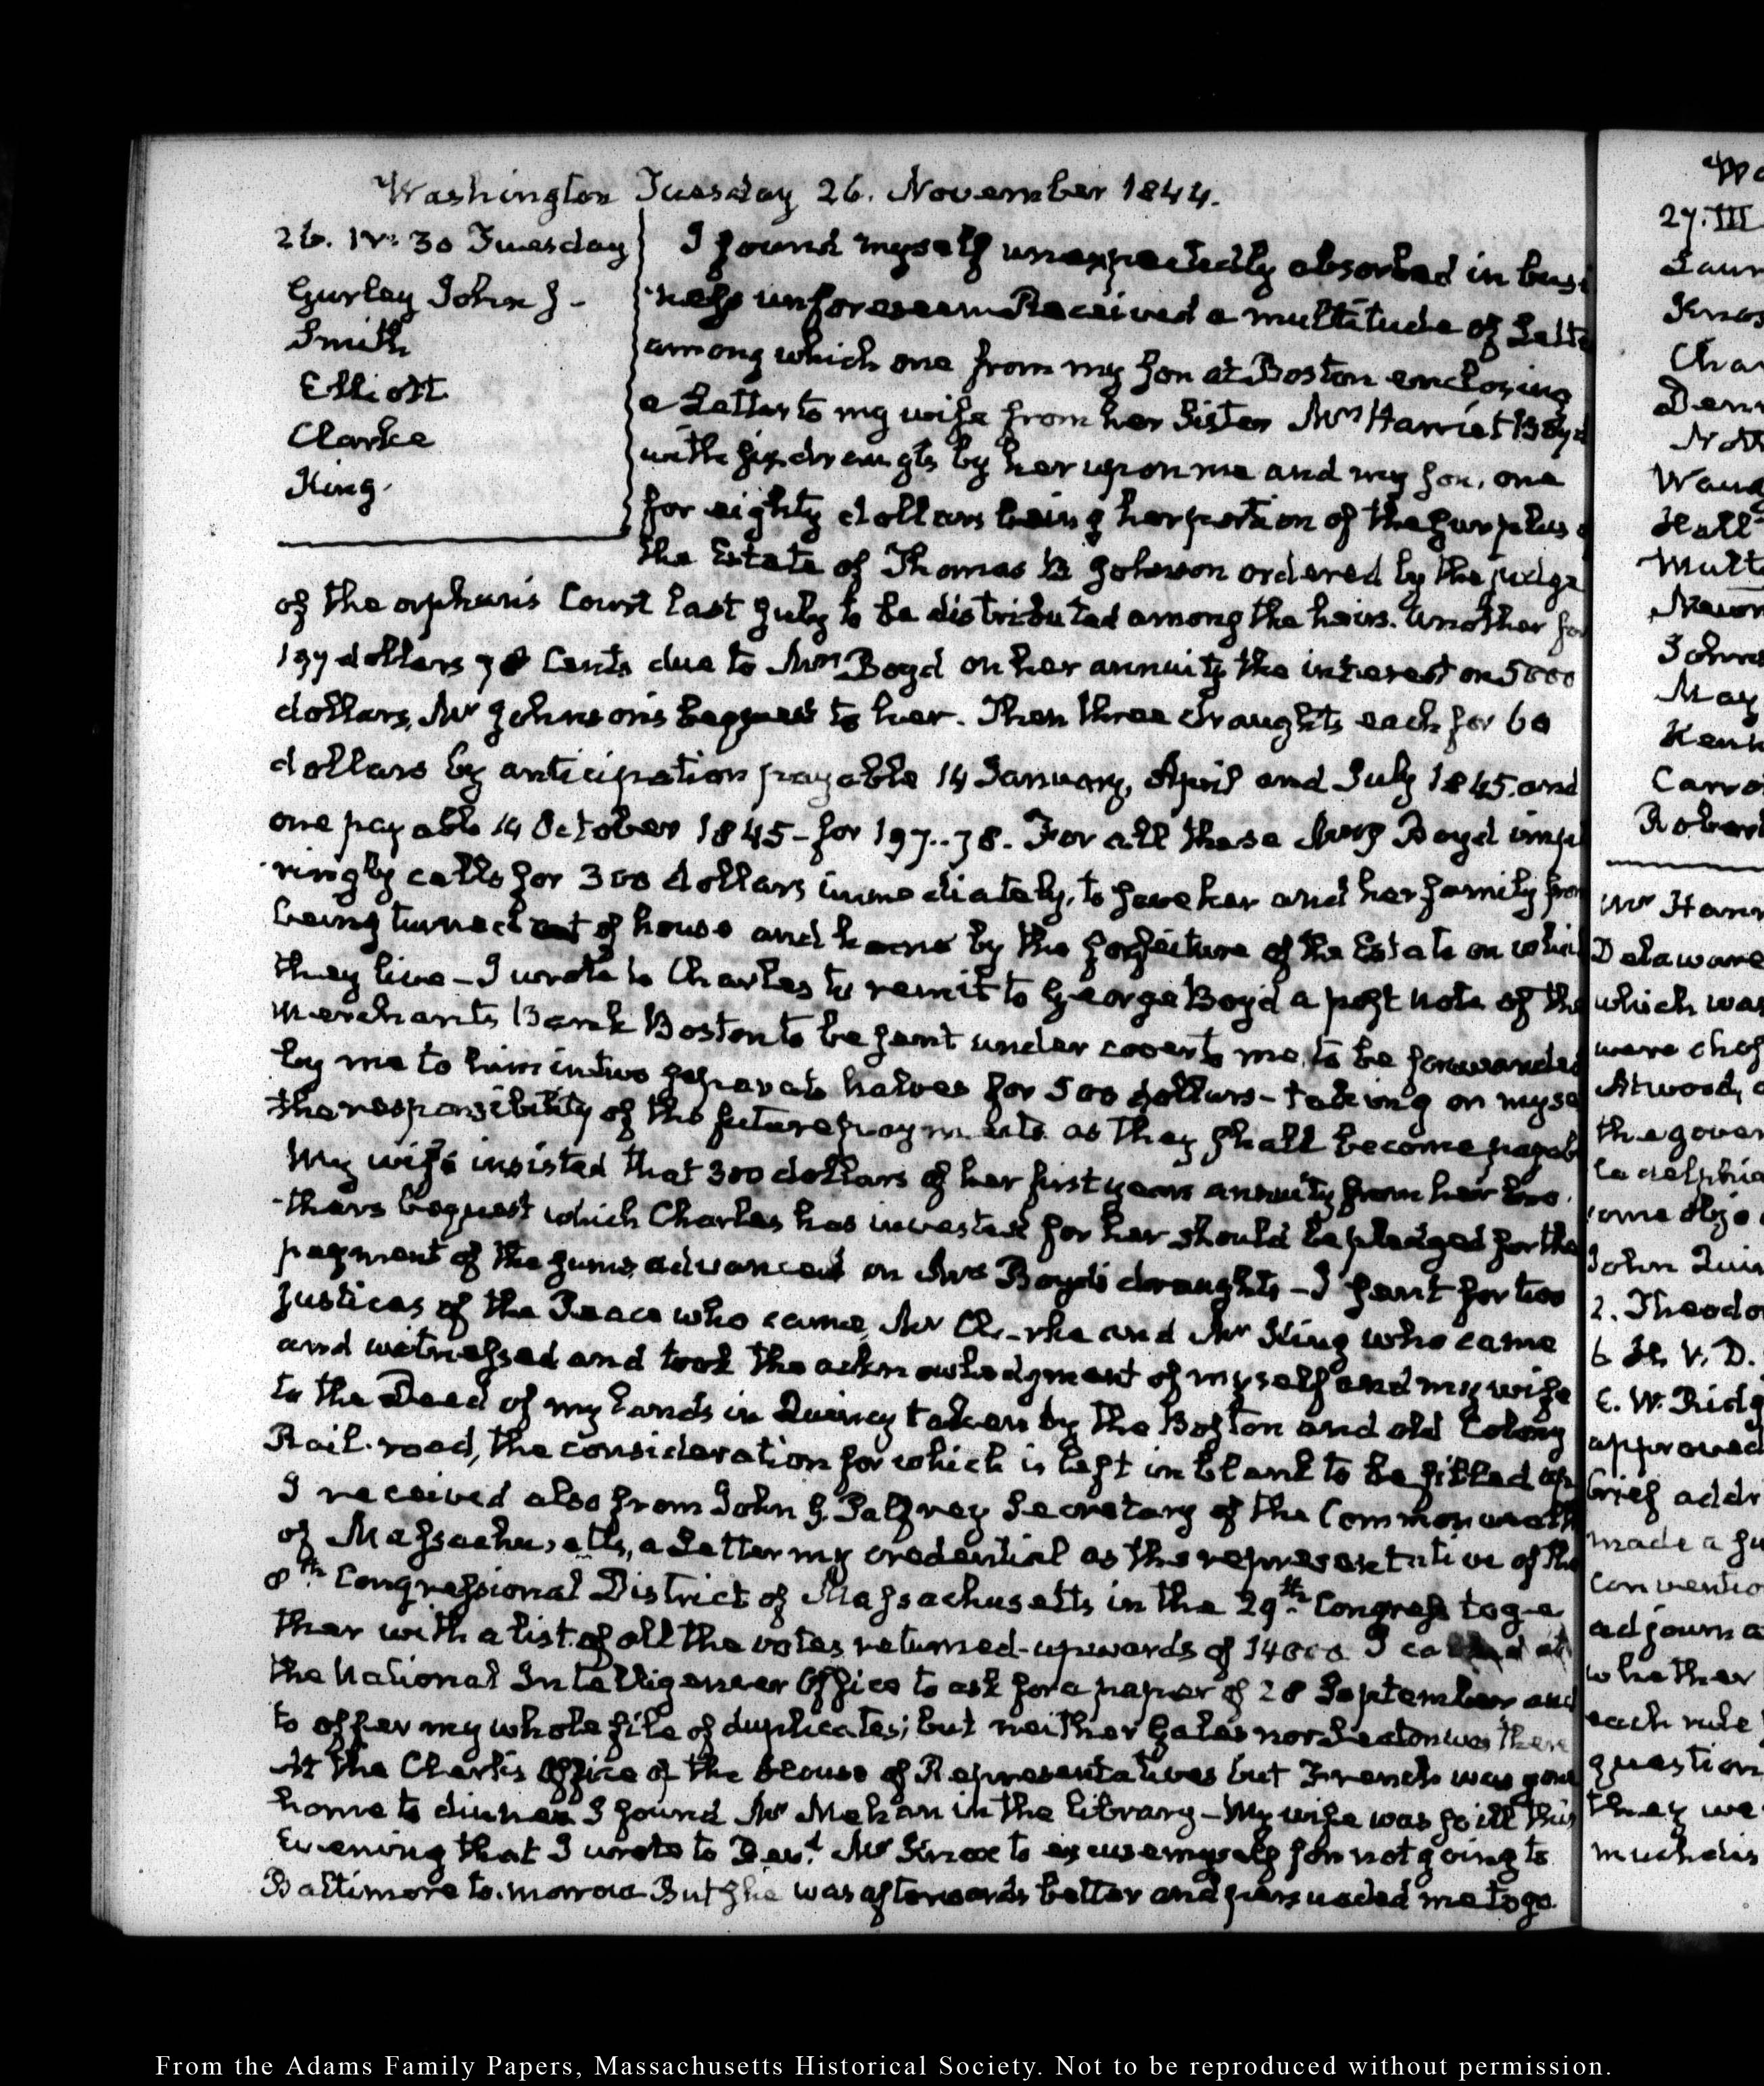 Washington Tuesday 26. November 1844.
26. IV: 30 Tuesday
Gurley John J-
Smith
Elliott
Clarke
King.
I found myself unexpectedly absorbed in busi
ness unforeseen Received a multitude of Lette
among which one from my Son at Boston enclosing
a Letter to my wife from her Sister Mrs Harriet Boyd
with six draughts by her upon me and my Son, one
for eighty dollars being her portion of the surplus
the Estate of Thomas B Johnson ordered by the judge
of the orphan's Court last July to be distributed among the heirs. Another for
197 dollars 78 Cents due to Mrs Boyd on her annuity the interest on 5000
dollars, Mr Johnson's bequest to her. Then three draughts each for 60
dollars by anticipation payable 14 January, April and July 1845. and
one payable 14 October 1845 - for 197..78. For all these Mrs Boyd implo
ringly calls for 300 dollars immediately, to save her and her family from
being turned out of house and home by the forfeiture of the Estate on which
they live - I wrote to Charles to remit to George Boyd a post note of the
Merchants Bank Boston to be sent under cover to me, to be forwarded
by me to him in two separate halves for 500 dollars - taking on myse
the responsibility of the future payments as they shall become payab
My wife insisted that 300 dollars of her first years annuity from her bro
-thers bequest which Charles has invested for her should be pledged for the
payment of the sums advanced on Mrs Boyd's draughts - I sent for two
Justices of the Peace who came, Mr Clarke and Mr King who came
and witnessed and took the acknowledgment of myself and my wife
to the Deed of my Lands in Quincy taken by the Boston and old Colony
Rail-road, the consideration for which is left in blank to be filled up
I received also from John G. Palfrey Secretary of the Commonwealth
of Massachusetts, a Letter my credential as the representative of the
8th Congressional District of Massachusetts in the 29th Congress toge
ther with a list of all the votes returned - upwards of 14000. I called at
the National Intelligencer Office to ask for a paper of 28 September and
to offer my whole file of duplicates; but neither Gales nor Seaton was there
At the Clerk's Office of the House of Representatives but French was gone
home to dinner I found Mr Mehan in the library - My wife was so ill this
Evening that I wrote to Revd. Mr Knox to excuse myself for not going to
Baltimore to-morrow But she was afterwards better and persuaded me to go.
27. III
John
May
Carro
Robert
Mr Hann
Delaware
which was
were chos
Atwood,
the gover
ladelphia
some obje
John Quin
2. Theodo
6 H. V. D.
E. W. Ridg
approved
brief addr
made a
conventio
adjourn
whether
each rule
question
they we
much dis
From the Adams Family Papers, Massachusetts Historical Society. Not to be reproduced without permission.